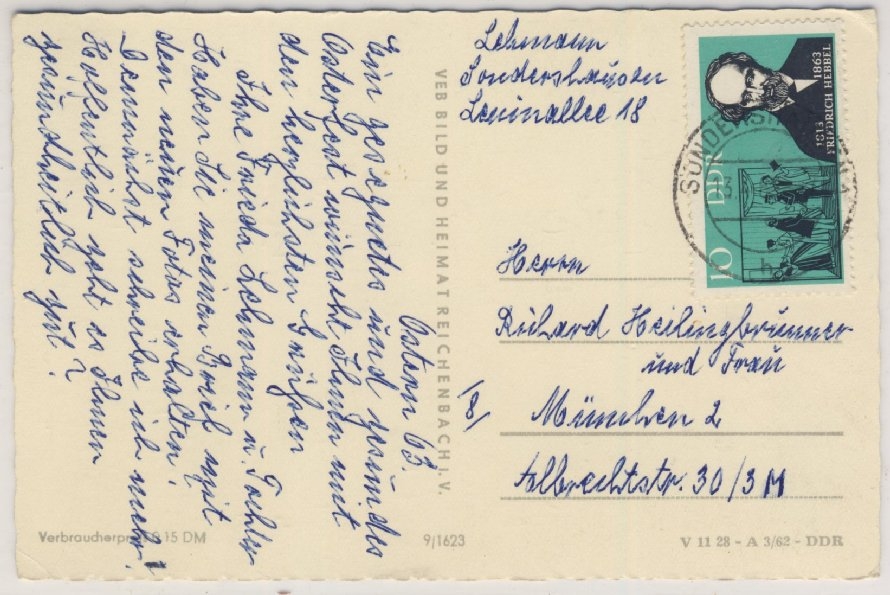 Ostern 63.
Ein gesegnetes und gesundes
Osterfest wünscht Ihnen mit
den herzlichsten Grüßen
Ihre Frieda Lehmann u. Tochter
Haben Sie meinen Brief mit
den neuen Fotos erhalten?
Demnächst schreibe ich mehr.
Hoffentlich geht es Ihnen
gesundheitlich gut?
VEB BILD UND HEIMAT REICHENBACH I. V.
Lehmann
Sondershausen
Leninallee 18
1813 1863
FRIEDRICH HEBBEL
DDR
10
SONDERSH
Herrn
Richard Heilingbrunner
und Frau
/8/ München 2
Albrechtstr. 30/3 M
Verbraucherpr 0.15 DM
9/1623
V 11 28 - A 3/62 - DDR